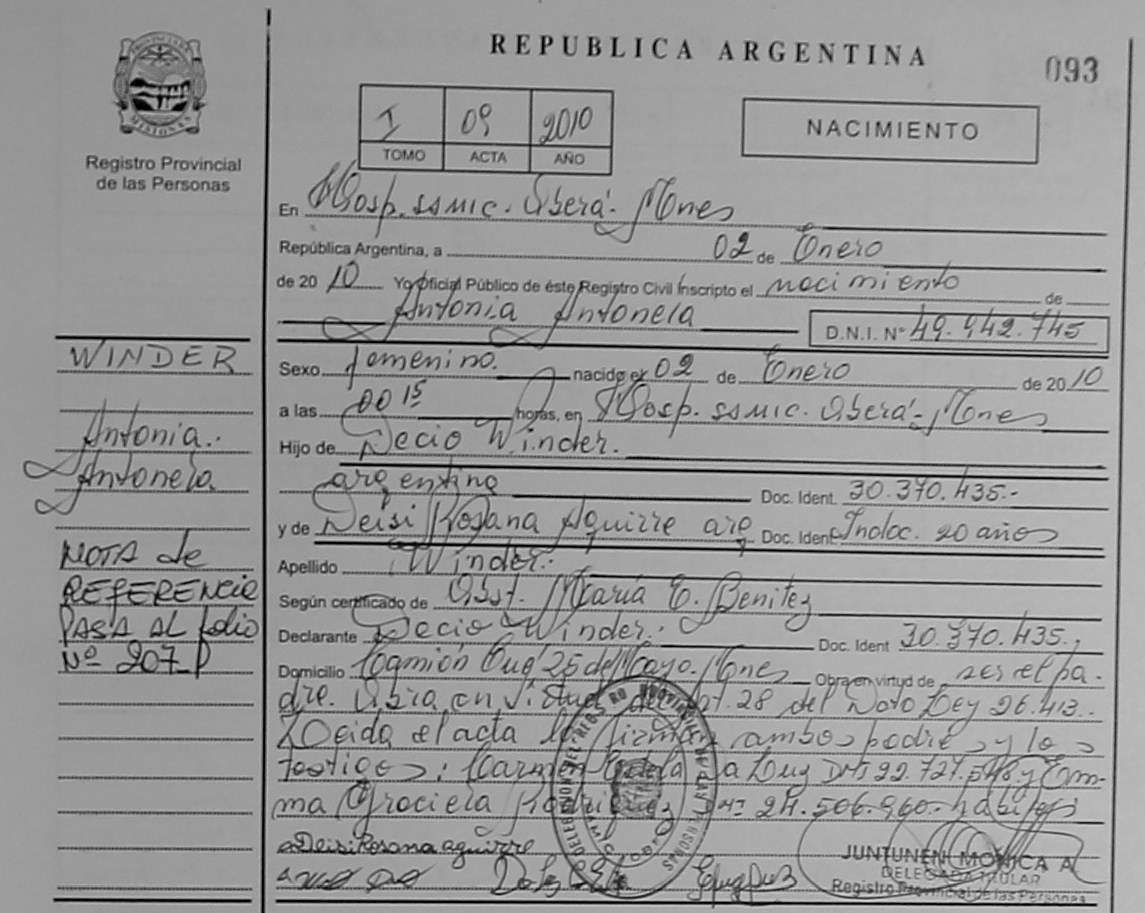 REPUBLICA ARGENTINA
093
PROVINCIA DE
MISIONES
Registro Provincial
de las Personas
I 09 2010
TOMO ACTA AÑO
NACIMIENTO
En Hosp. ssmic. Oberá - Mnes
República Argentina, a 02 de Enero
de 20 10 Yo Oficial Público de éste Registro Civil Inscripto el nacimiento de
Antonia Antonela
D.N.I. Nº 49.942.745
WINDER
Antonia
Antonela
NOTA de
REFERENCIA
PASA AL folio
Nº 207
Sexo femenino. nacido el 02 de Enero de 20 10
a las 00 15 horas, en Hosp. ssmic. Oberá - Mnes
Hijo de Decio Winder.
argentino Doc. Ident. 30.370.435.-
y de Deisi Rosana Aguirre arg Doc. Ident Indoc. 20 años
Apellido Winder.
Según certificado de Obst. María E. Benitez
Declarante Decio Winder. Doc. Ident 30.370.435.,
Domicilio 25 de Mayo. Mnes Obra en virtud de ser el pa-
dre. Obra en virtud del Art. 28 del Ley 26.413.-
Leida el acta la firman ambos padres y los
testigos: Carmen Da Luz 22.727.548 y Em-
ma Graciela Rodriguez 24.506.960.- habiles
Deisi Rosana aguirre
JUNTUNEN MONICA A.
DELEGADA TITULAR
Registro Provincial de las Personas